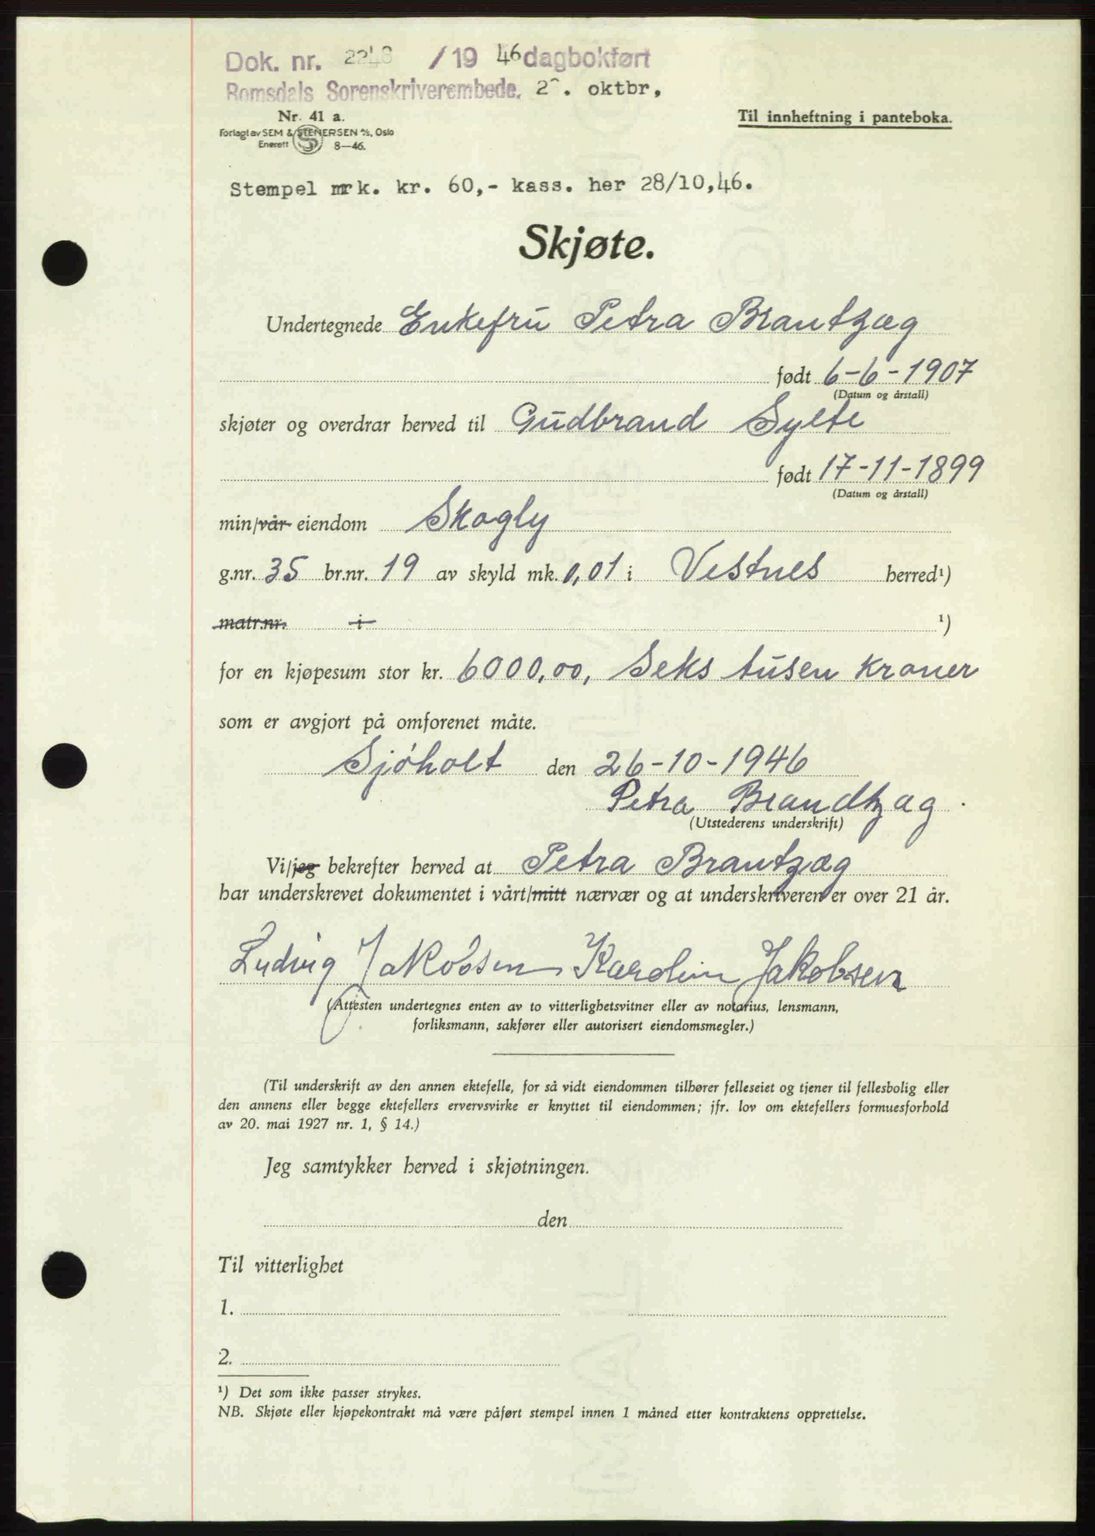 Dok. nr. 2248 /19 46 dagbokført
Romsdals Sorenskriverembede, oktbr,
Nr. 41 a.
Forlagt av SEM & STENERSEN A/S, Oslo
Enerett 8—46.
Til innheftning i panteboka.
Stempel mrk. kr. 60,- kass. her 28/10,46.
Skjøte.
Undertegnede Enkefru Petra Brantzæg
født 6-6-1907
(Datum og årstall)
skjøter og overdrar herved til Gudbrand Sylte
født 17-11-1899
(Datum og årstall)
min/vår eiendom Skogly
g.nr. 35 br.nr. 19 av skyld mk. 0,01 i Vestnes herred¹)
matr.nr. i ¹)
for en kjøpesum stor kr. 6000,00, Seks tusen kroner
som er avgjort på omforenet måte.
Sjøholt den 26-10-1946
Petra Brandtzæg.
(Utstederens underskrift)
Vi/jeg bekrefter herved at Petra Brantzæg
har underskrevet dokumentet i vårt/mitt nærvær og at underskriveren er over 21 år.
Ludvig Jakobsen Karolin Jakobsen
(Attesten undertegnes enten av to vitterlighetsvitner eller av notarius, lensmann,
forliksmann, sakfører eller autorisert eiendomsmegler.)
(Til underskrift av den annen ektefelle, for så vidt eiendommen tilhører felleseiet og tjener til fellesbolig eller
den annens eller begge ektefellers ervervsvirke er knyttet til eiendommen; jfr. lov om ektefellers formuesforhold
av 20. mai 1927 nr. 1, § 14.)
Jeg samtykker herved i skjøtningen.
den
Til vitterlighet
1.
2.
¹) Det som ikke passer strykes.
NB. Skjøte eller kjøpekontrakt må være påført stempel innen 1 måned etter kontraktens opprettelse.